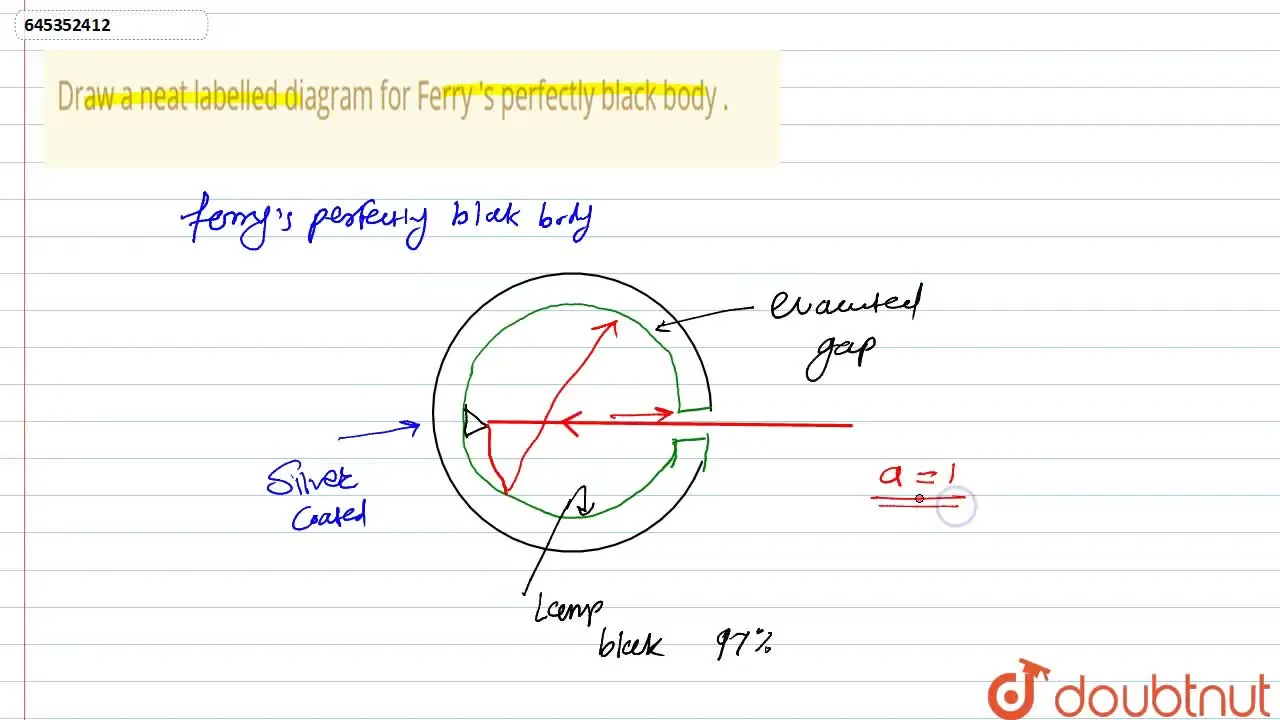 645352412
Draw a neat labelled diagram for Ferry 's perfectly black body .
Ferry's perfectly blak body
evacuted
gap
Silver
Coated
a = 1
Lamp
blak 97%
doubtnut